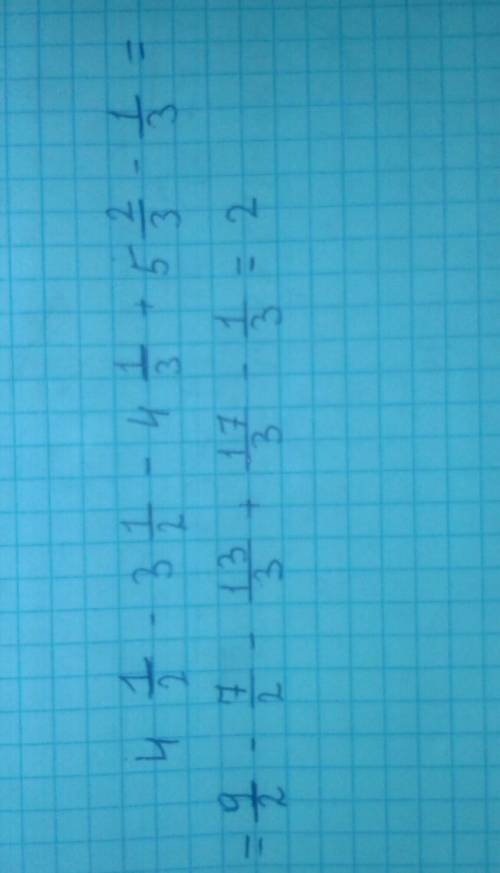 4 1/2 - 3 1/2 - 4 1/3 + 5 2/3 - 1/3 =
= 9/2 - 7/2 - 13/3 + 17/3 - 1/3 = 2